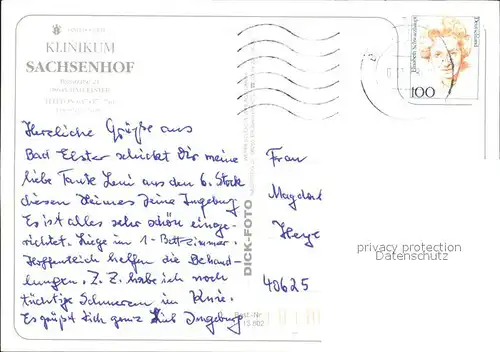 KLINIKUM
SACHSENHOF
Herzliche Grüße aus
Bad Elster schickt Dir meine
liebe Tante Leni aus den 6. Stock
diesen Heimes Deine Ingeburg
Es ist alles sehr schön einge-
richtet. Liege im 1-Bettzimmer.
Hoffentlich helfen die Behand-
lungen. Z. Z. habe ich noch
tüchtige Schmerzen im Knie.
Es grüßt Dich ganz lieb Ingeburg
DICK-FOTO
Best.-Nr.
Deutschland
Elisabeth Schwarzhaupt
100
Frau
Magdal
Heye
40625
privacy protection
Datenschutz